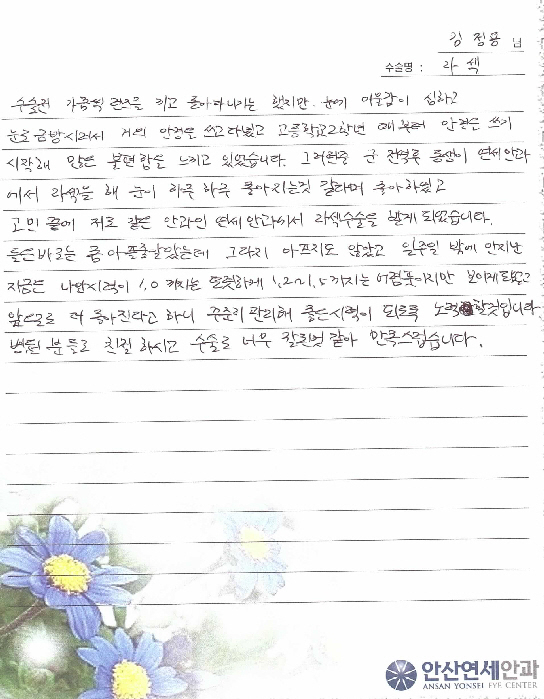 김정용 님
수술명 : 라섹
수술전 가끔씩 렌즈를 끼고 돌아다니기는 했지만 눈이 어울감이 심하고
눈도금방시려워서 거의 안경을 쓰고다녔고 고등학교2학년 때부터 안경은 쓰기
시작해 많은 불편함을 느끼고 있었습니다. 그러던중 군 전역후 동생이 연세안과
에서 라섹을 해 눈이 하루 하루 좋아지는것 같다며 좋아하였고
고민 끝에 저도 같은 안과인 연세안과에서 라섹수술을 받게 되었습니다.
들은바로는 좀 아플줄알았는데 그다지 아프지도 않았고 일주일 밖에 안지난
지금은 나안시력이 1.0 까지는 또렷하게 1.2와1.5까지는 어렴풋이지만 보이게되었고
앞으로 더 좋아진다고 하니 꾸준히 관리해 좋은시력이 되도록 노력할것입니다
병원 분들도 친절 하시고 수술도 너무 잘된것 같아 만족스럽습니다.
안산연세안과
ANSAN YONSEI EYE CENTER